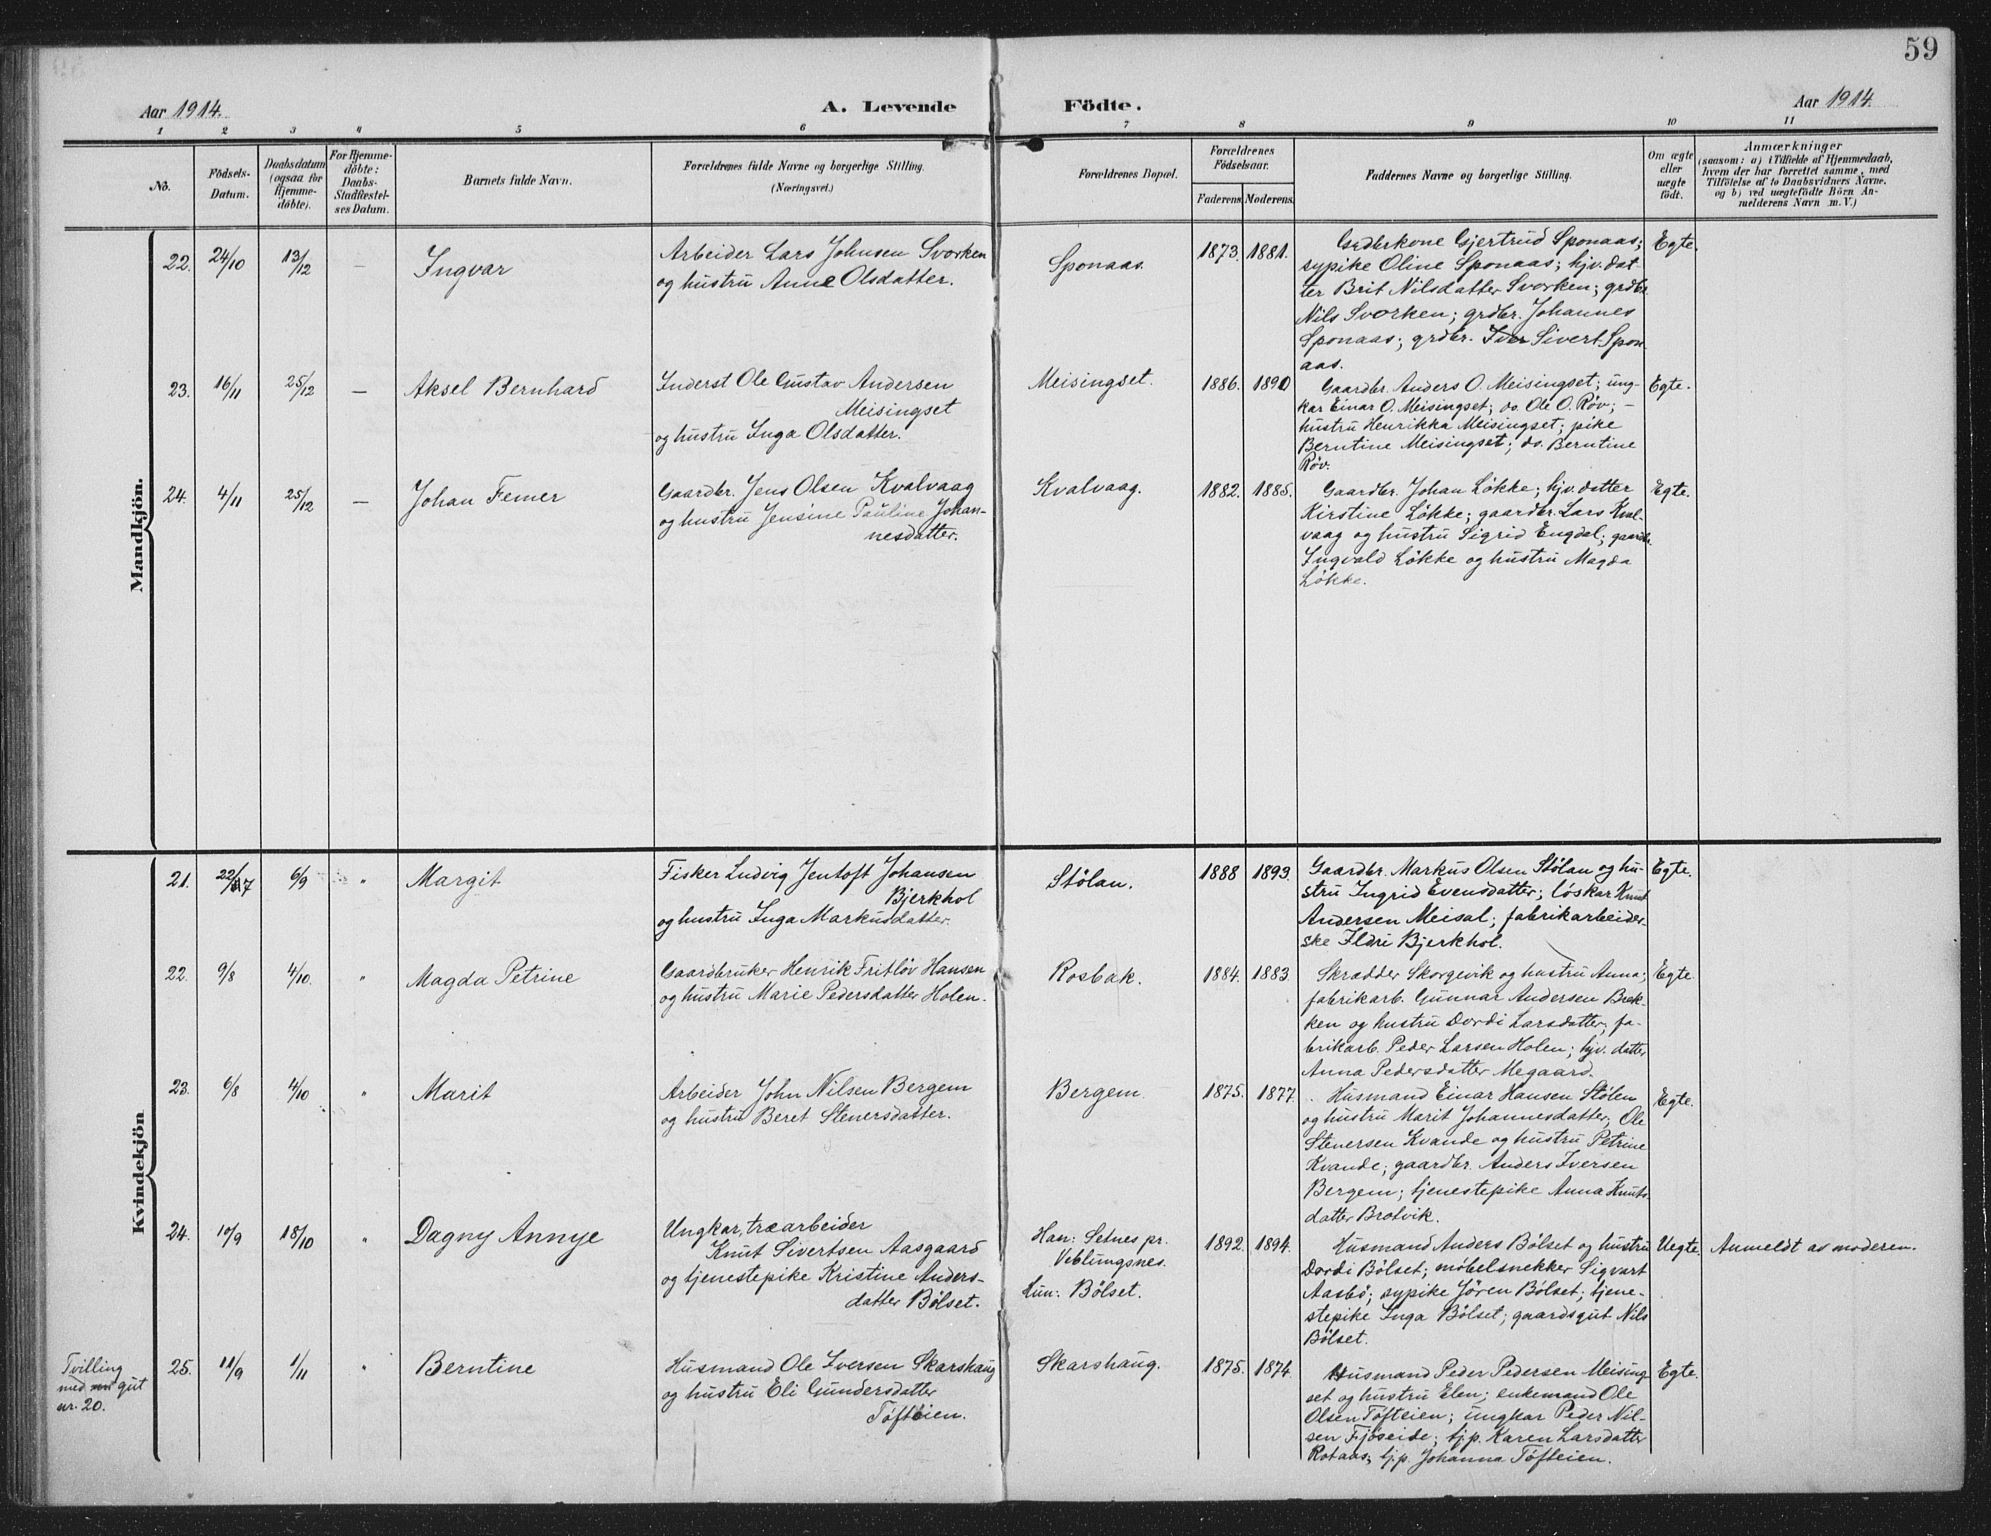 59
Aar 1914.
A. Levende
Födte.
Aar 1914.
1 2 3 4 5 6 7 8 9 10 11
No.
Födsels-
Datum.
Daabsdatum
(ogsaa for
Hjemme-
döbte).
For Hjemme-
döbte:
Daabs-
Stadfæstel-
ses Datum.
Barnets fulde Navn.
Forældrenes fulde Navne og borgerlige Stilling.
(Næringsvei.)
Forældrenes Bopæl.
Forældrenes
Födselsaar.
Faderens. Moderens.
Faddernes Navne og borgerlige Stilling.
Om ægte
eller
uægte
födt.
Anmærkninger
(saasom: a) i Tilfælde af Hjemmedaab,
hvem der har forrettet samme, med
Tilföielse af to Daabsvidners Navne,
og b) ved uægtefödte Börn An-
melderens Navn m. V.)
Mandkjön.
22. 24/10 13/12 —
Ingvar
Arbeider Lars Johnsen Svorken
og hustru Anne Olsdatter.
Sponaas.
1873. 1881.
Grdbrkone Gjertrud Sponaas;
sypike Oline Sponaas; hjv. dat-
ter Brit Nilsdatter Svorken; grdbr.
Nils Svorken; grdbr. Johannes
Sponaas; grdbr. Iver Sivert Spon-
aas.
Egte.
23. 16/11 25/12 —
Aksel Bernhard
Inderst Ole Gustav Andersen
Meisingset
og hustru Inga Olsdatter.
Meisingset.
1886. 1890
Gaardbr. Anders O. Meisingset; ung-
kar Einar O. Meisingset; do. Ole O. Røv; —
hustru Henrikka Meisingset; pike
Berntine Meisingset; do. Berntine
Røv.
Egte.
24. 4/11 25/12 —
Johan Femer
Gaardbr. Jens Olsen Kvalvaag
og hustru Jensine Pauline Johan-
nesdatter.
Kvalvaag.
1882. 1885.
Gaardbr. Johan Løkke; hjv. datter
Kirstine Løkke; gaardbr. Lars Kval-
vaag og hustru Sigrid Engdal; gaardbr.
Ingvald Løkke og hustru Magda
Løkke.
Egte.
Kvindekjön
21. 22/7 6/9 "
Margit
Fisker Ludvig Jentoft Johansen
Bjerkhol
og hustru Inga Markusdatter.
Stølan.
1888 1893.
Gaardbr. Markus Olsen Stølan og hu-
stru Ingrid Evensdatter; løskar Knut
Andersen Meisal; fabrikarbeider-
ske Ildri Bjerkhol.
Egte.
22. 9/8 4/10. "
Magda Petrine
Gaardbruker Henrik Fritløv Hansen
og hustru Marie Pedersdatter Holen.
Rosbak.
1884. 1883.
Skrædder Skorgevik og hustru Anna;
fabrikarb. Gunnar Andersen Brek-
ken og hustru Dordi Larsdatter; fa-
brikarb. Peder Larsen Holen; hjv. datter
Anna Pedersdatter Megaard.
Egte
23. 6/8 4/10 "
Marit
Arbeider John Nilsen Bergem
og hustru Beret Stenersdatter.
Bergem.
1875. 1877.
Husmand Einar Hansen Stølen
og hustru Marit Johannesdatter; Ole
Stenersen Kvande og hustru Petrine
Kvande; gaardbr. Anders Iversen
Bergem; tjenestepike Anna Knuts-
datter Brotvik.
Egte.
24. 10/9 18/10 "
Dagny Annye
Ungkar, træarbeider
Knut Sivertsen Aasgaard
og tjenestepike Kristine Anders-
datter Bølset.
Han: Setnes pr.
Veblungsnes.
Hun: Bølset.
1892. 1894.
Husmand Anders Bølset og hustru
Dordi Bølset; møbelsnekker Sigvart
Aasbø; sypike Jøren Bølset; tjene-
stepike Inga Bølset; gaardsgut Nils
Bølset.
Uegte.
Anmeldt av moderen.
Tvilling
med gut
nr. 20.
25. 11/9 1/11 "
Berntine
Husmand Ole Iversen Skarshaug
og hustru Eli Gundersdatter
Tøfteien.
Skarshaug.
1875. 1874.
Husmand Peder Pedersen Meising-
set og hustru Elen; enkemand Ole
Olsen Tøfteien; ungkar Peder Nil-
sen Fjøseide; tj.p. Karen Larsdatter
Rotaas; tj.p. Johanna Tøfteien.
Egte.